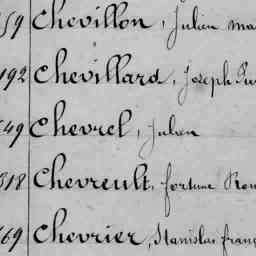 59 Chevillon, Julien ma
192 Chevillard, Joseph
549 Chevrel, Julien
318 Chevreult, fortuné
669 Chevrier, Stanislas franç